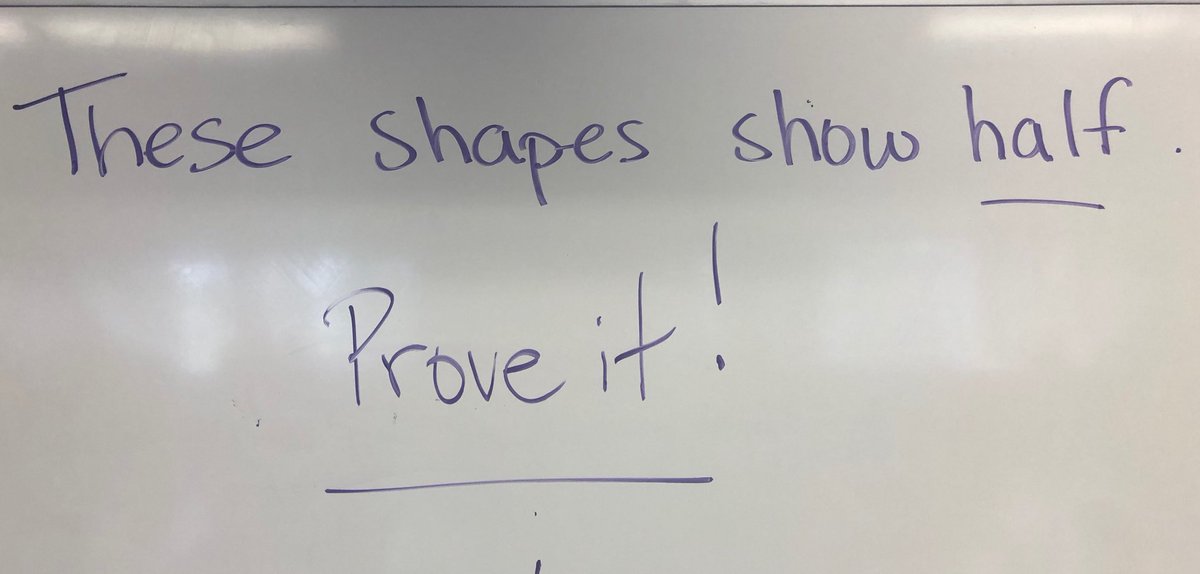 These shapes show half.
Prove it!